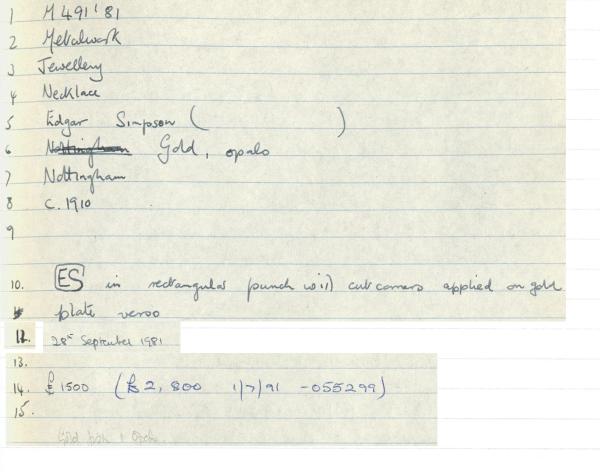 1 M 491 '81
2 Metalwork
3 Jewellery
4 Necklace
5 Edgar Simpson ( )
6 Nottingham Gold, opals
7 Nottingham
8 C. 1910
9
10. ES in rectangular punch with cut corners applied on gold
plate verso
12. 28th September 1981
13.
14. £1500 (£2,800 1/7/91 -055299)
15.
Gold